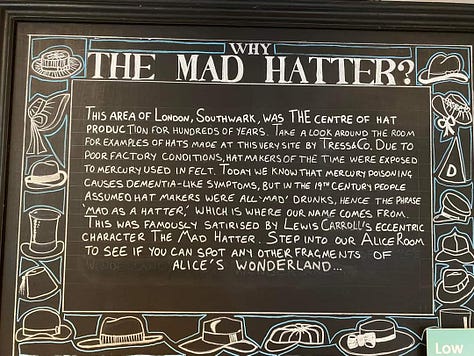 WHY
THE MAD HATTER?
THIS AREA OF LONDON, SOUTHWARK, WAS THE CENTRE OF HAT
PRODUCTION FOR HUNDREDS OF YEARS. TAKE A LOOK AROUND THE ROOM
FOR EXAMPLES OF HATS MADE AT THIS VERY SITE BY TRESS&CO. DUE TO
POOR FACTORY CONDITIONS, HAT MAKERS OF THE TIME WERE EXPOSED
TO MERCURY USED IN FELT. TODAY WE KNOW THAT MERCURY POISONING
CAUSES DEMENTIA-LIKE SYMPTOMS, BUT IN THE 19TH CENTURY PEOPLE
ASSUMED HAT MAKERS WERE ALL 'MAD' DRUNKS, HENCE THE PHRASE
'MAD AS A HATTER,' WHICH IS WHERE OUR NAME COMES FROM.
THIS WAS FAMOUSLY SATIRISED BY LEWIS CARROLL'S ECCENTRIC
CHARACTER THE MAD HATTER. STEP INTO OUR ALICE ROOM
TO SEE IF YOU CAN SPOT ANY OTHER FRAGMENTS OF
ALICE'S WONDERLAND...
Low